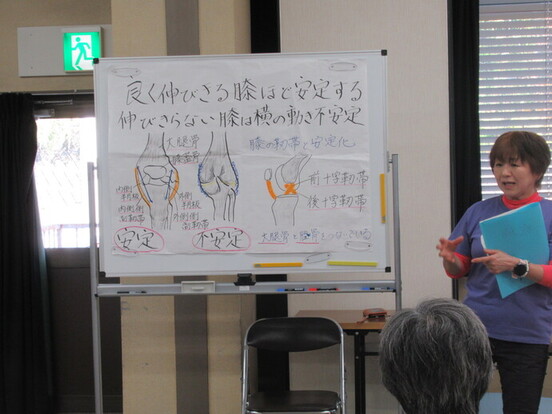 良く伸びきる膝ほど安定する
伸びきらない膝は横の動き不安定
大腿骨
膝蓋骨
内側
半月板
内側側
副靭帯
外側
半月板
外側側
副靭帯
安定
不安定
膝の靭帯と安定化
前十字靭帯
後十字靭帯